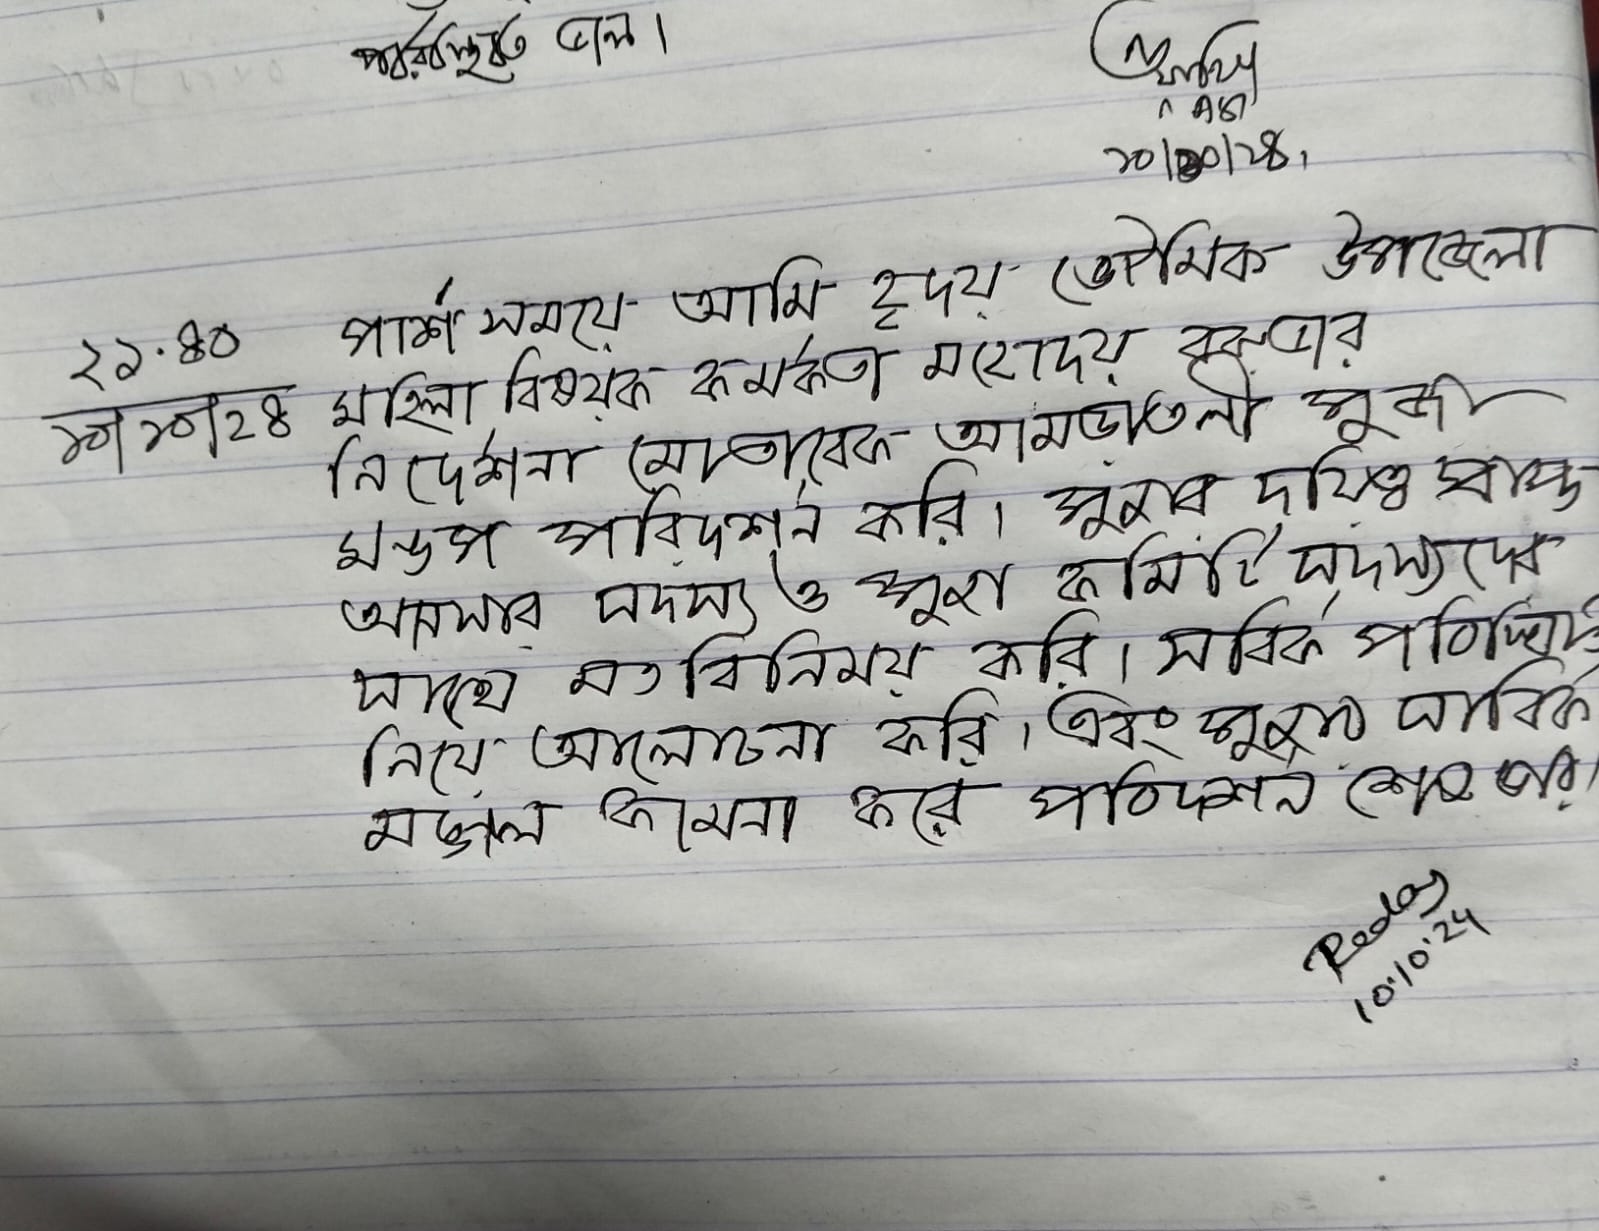 পরিস্থিতি ভাল।
১০/১০/২৪,
২১.৪০
১০/১০/২৪
পার্শ সময়ে আমি হৃদয় ভৌমিক উপজেলা
মহিলা বিষয়ক কর্মকর্তা মহোদয়
নির্দেশনা মোতাবেক আমড়াতলী পুজা
মন্ডপ পরিদর্শন করি। পুজার দায়িত্ব প্রাপ্ত
আনসার সদস্য ও পুজা কমিটি সদস্যদের
সাথে মত বিনিময় করি। সার্বিক পরিস্থিতি
নিয়ে আলোচনা করি। এবং পুজার সার্বিক
মঙ্গল কামনা করে পরিদর্শন শেষ করি।
10.10.24